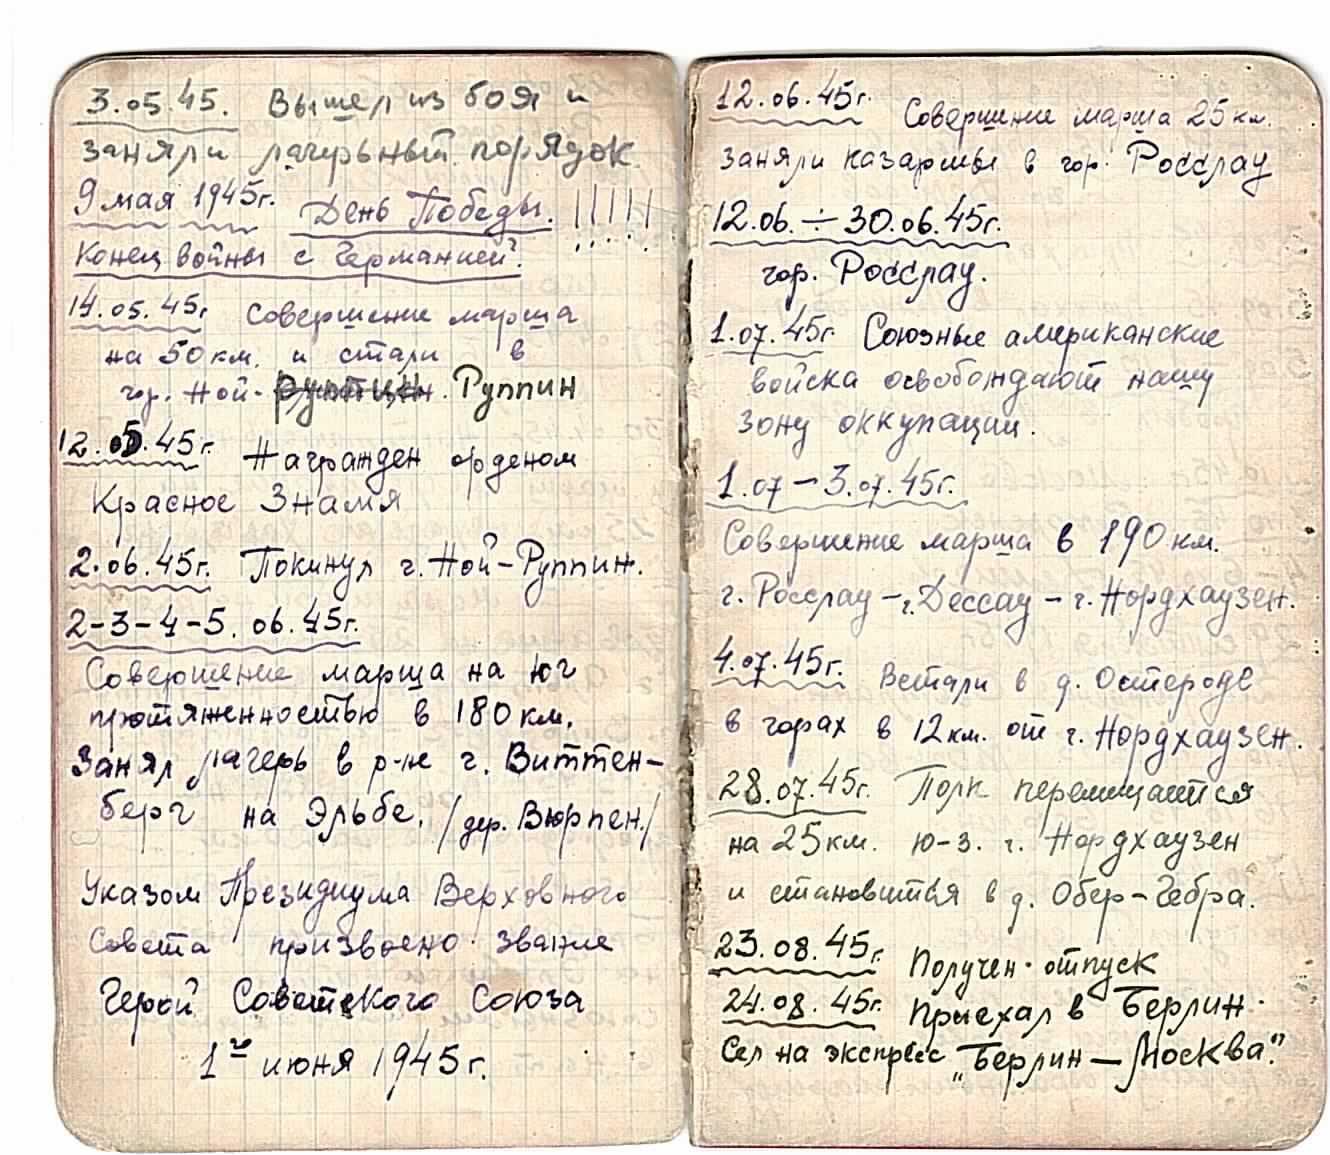 3.05.45. Вышел из боя и
заняли лагерный порядок
9 мая 1945г. День Победы. !!!!!
Конец войны с Германией.
14.05.45г. Совершение марша
на 50 км. и стали в
гор. Ной- Руппин
12.05.45г. Награжден орденом
Красное Знамя
2.06.45г. Покинул г. Ной-Руппин.
2-3-4-5. 06.45г.
Совершение марша на юг
протяженностью в 180 км.
Занял лагерь в р-не г. Виттен-
берг на Эльбе. /дер. Вюрпен./
Указом Президиума Верховного
Совета присвоено звание
Герой Советского Союза
1го июня 1945г.
12.06.45г. Совершение марша 25 км.
заняли казармы в гор. Росслау
12.06. ÷ 30.06.45г.
гор. Росслау.
1.07.45г. Союзные американские
войска освобождают нашу
зону оккупации.
1.07 – 3.07.45г.
Совершение марша в 190 км.
г. Росслау – г. Дессау – г. Нордхаузен.
4.07.45г. Встали в д. Остероде
в горах в 12 км. от г. Нордхаузен.
28.07.45г. Полк перемещается
на 25 км. ю-з. г. Нордхаузен
и становится в д. Обер-Гебра.
23.08.45г. Получен отпуск
24.08.45г. Приехал в Берлин.
Сел на экспресс „Берлин – Москва."